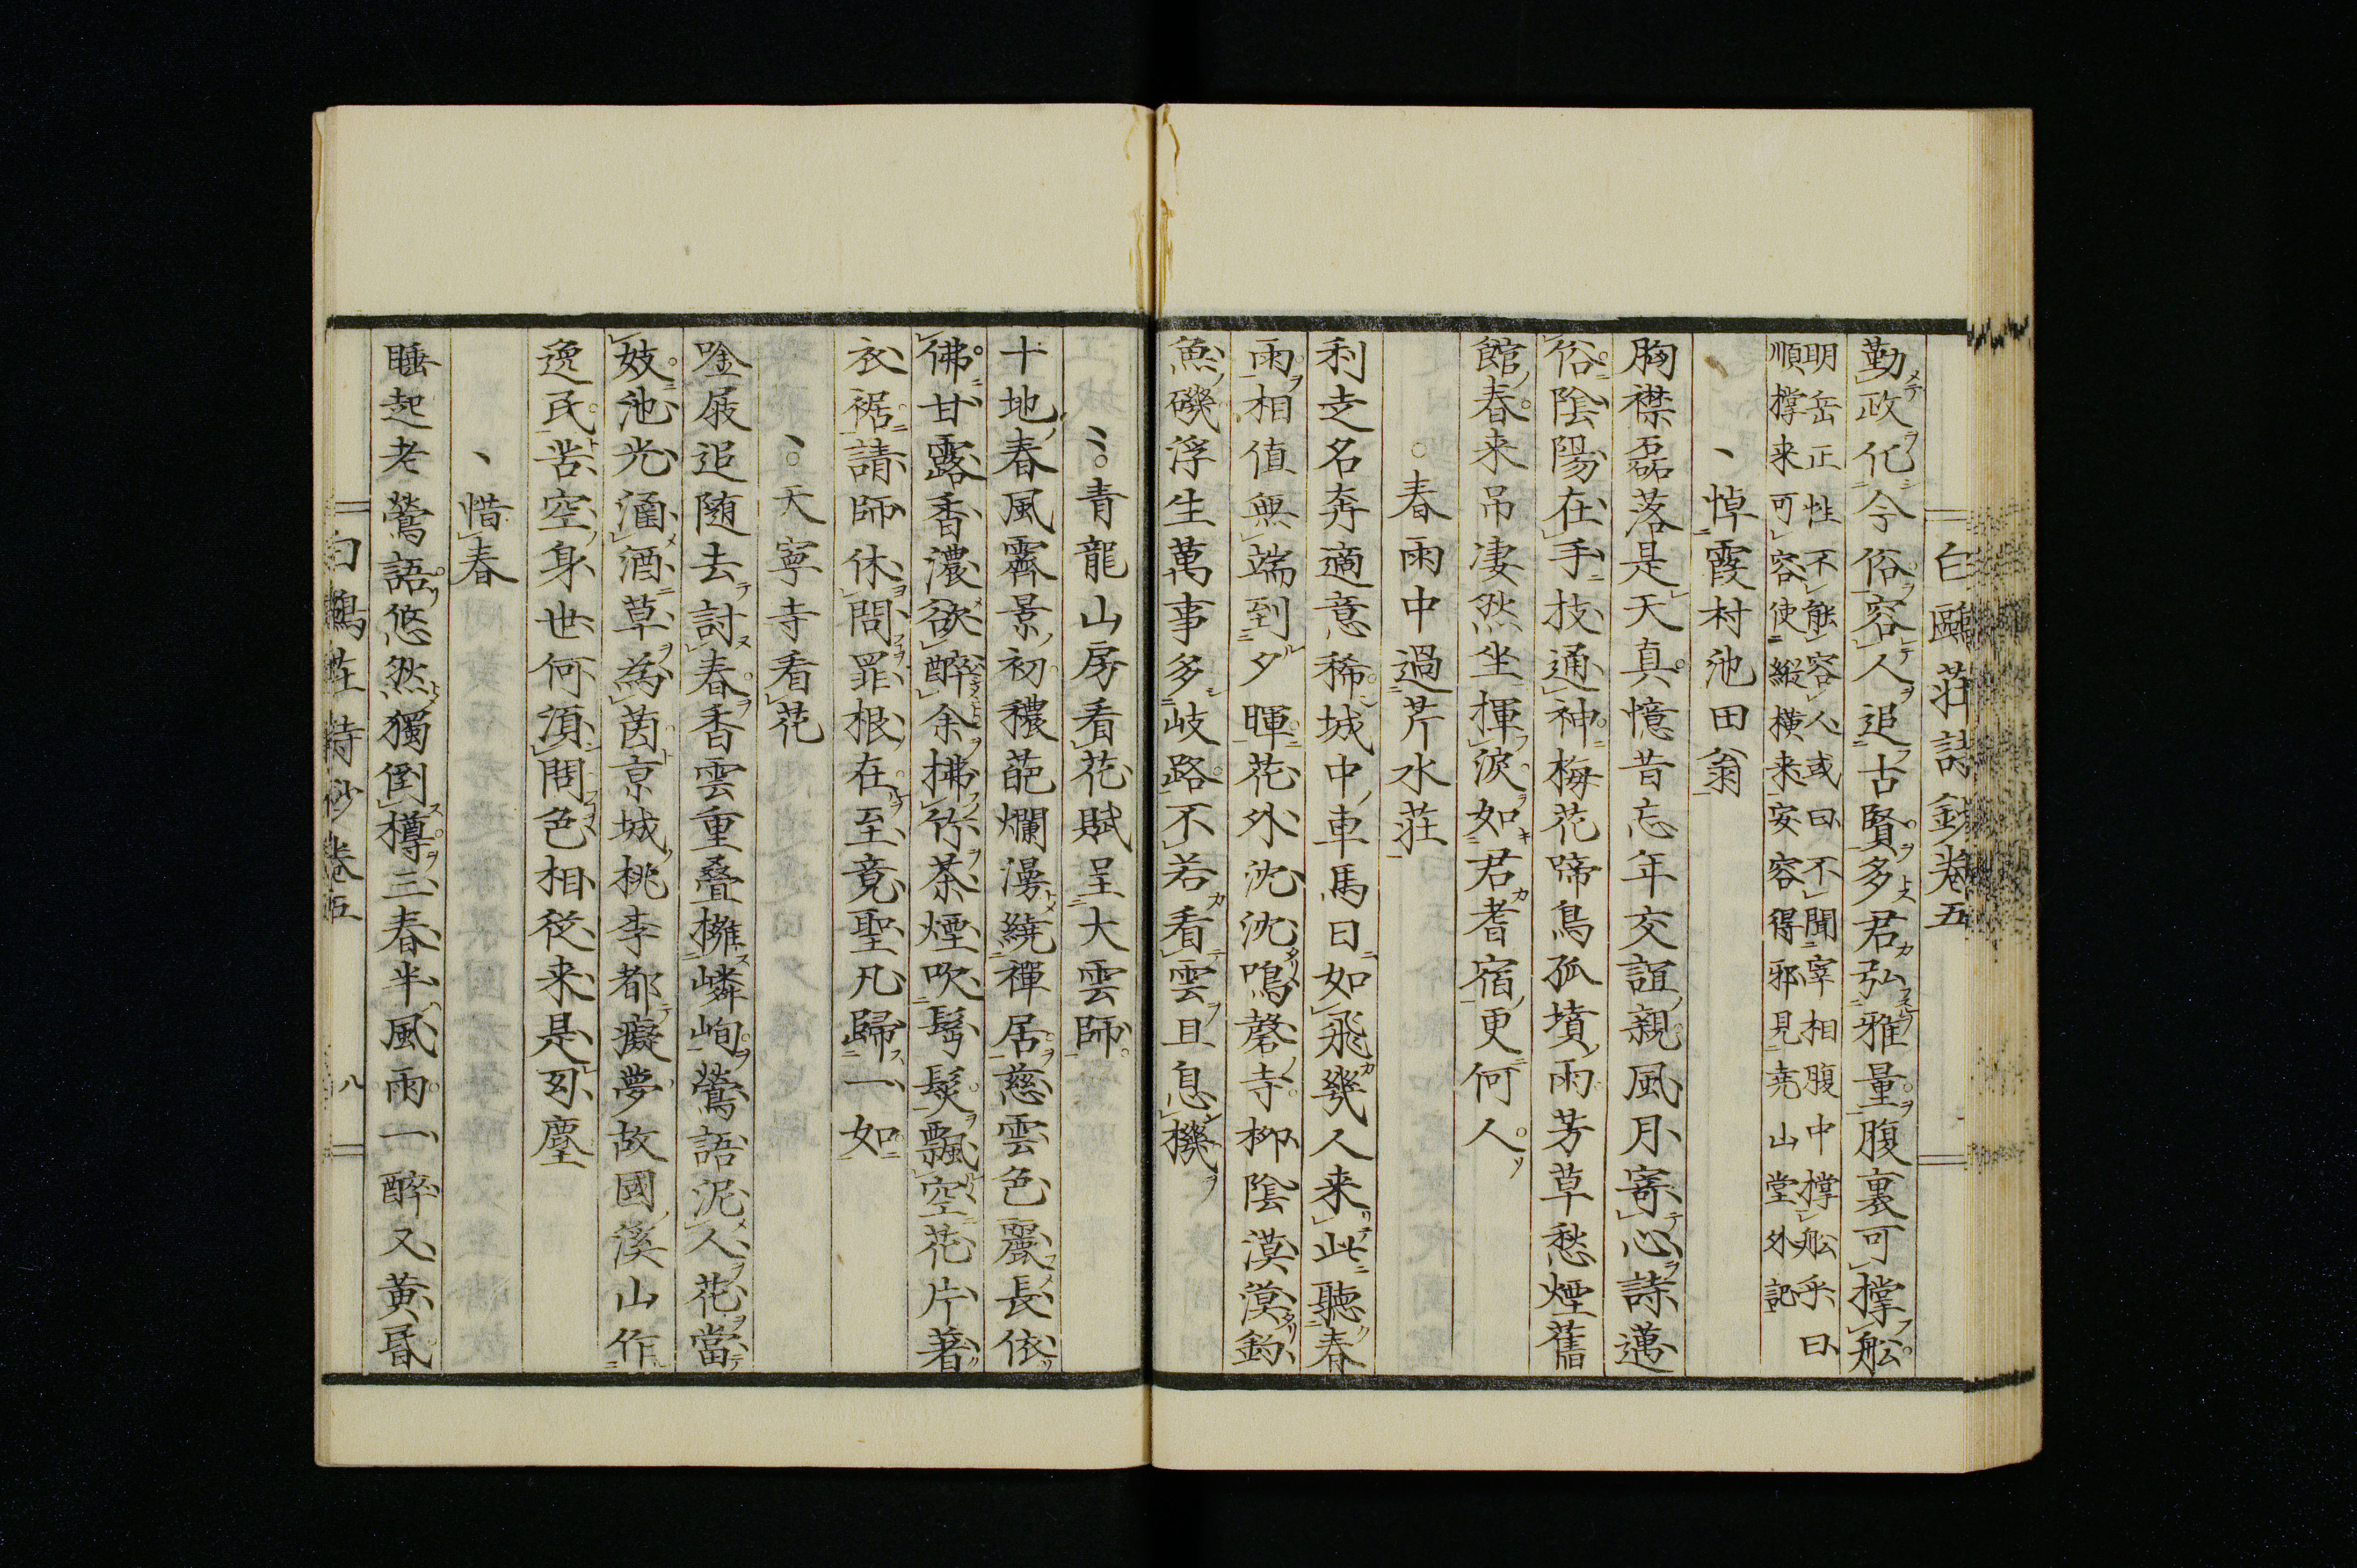 白鷗莊詩鈔卷五
勤政化今俗容人追古賢多君弘雅量腹裏可撑舩
明岳正性不能容人或曰不聞宰相腹中撑舩乎曰
順撑来可容使縱橫来安容得邪見堯山堂外記
悼霞村池田翁
胸襟磊落是天真憶昔忘年交誼親風月寄心詩邁
俗陰陽在手技通神梅花啼鳥孤墳雨芳草愁煙舊
館春来吊凄然坐揮淚如君耆宿更何人
春雨中過芹水莊
利走名奔適意稀城中車馬日如飛幾人来此聽春
雨相值無端到夕暉花外沈沈鳴磬寺柳陰漠漠釣
魚磯浮生萬事多岐路不若看雲且息機
青龍山房看花賦呈大雲師
十地春風霽景初穠葩爛漫繞禪居慈雲色麗長依
佛甘露香濃欲醉余拂竹茶煙吹鬢髮飄空花片著
衣裾請師休問罪根在至竟聖凡歸一如
天寧寺看花
唫屐追随去討春香雲重疊擁嶙峋鶯語泥人花當
妓池光湎酒草為茵京城桃李都癡夢故國溪山作
逸民苦空身世何須問色相從来是幻塵
惜春
睡起老鶯語悠然獨倒樽三春半風雨一醉又黄昏
白鷗莊詩鈔卷五　八